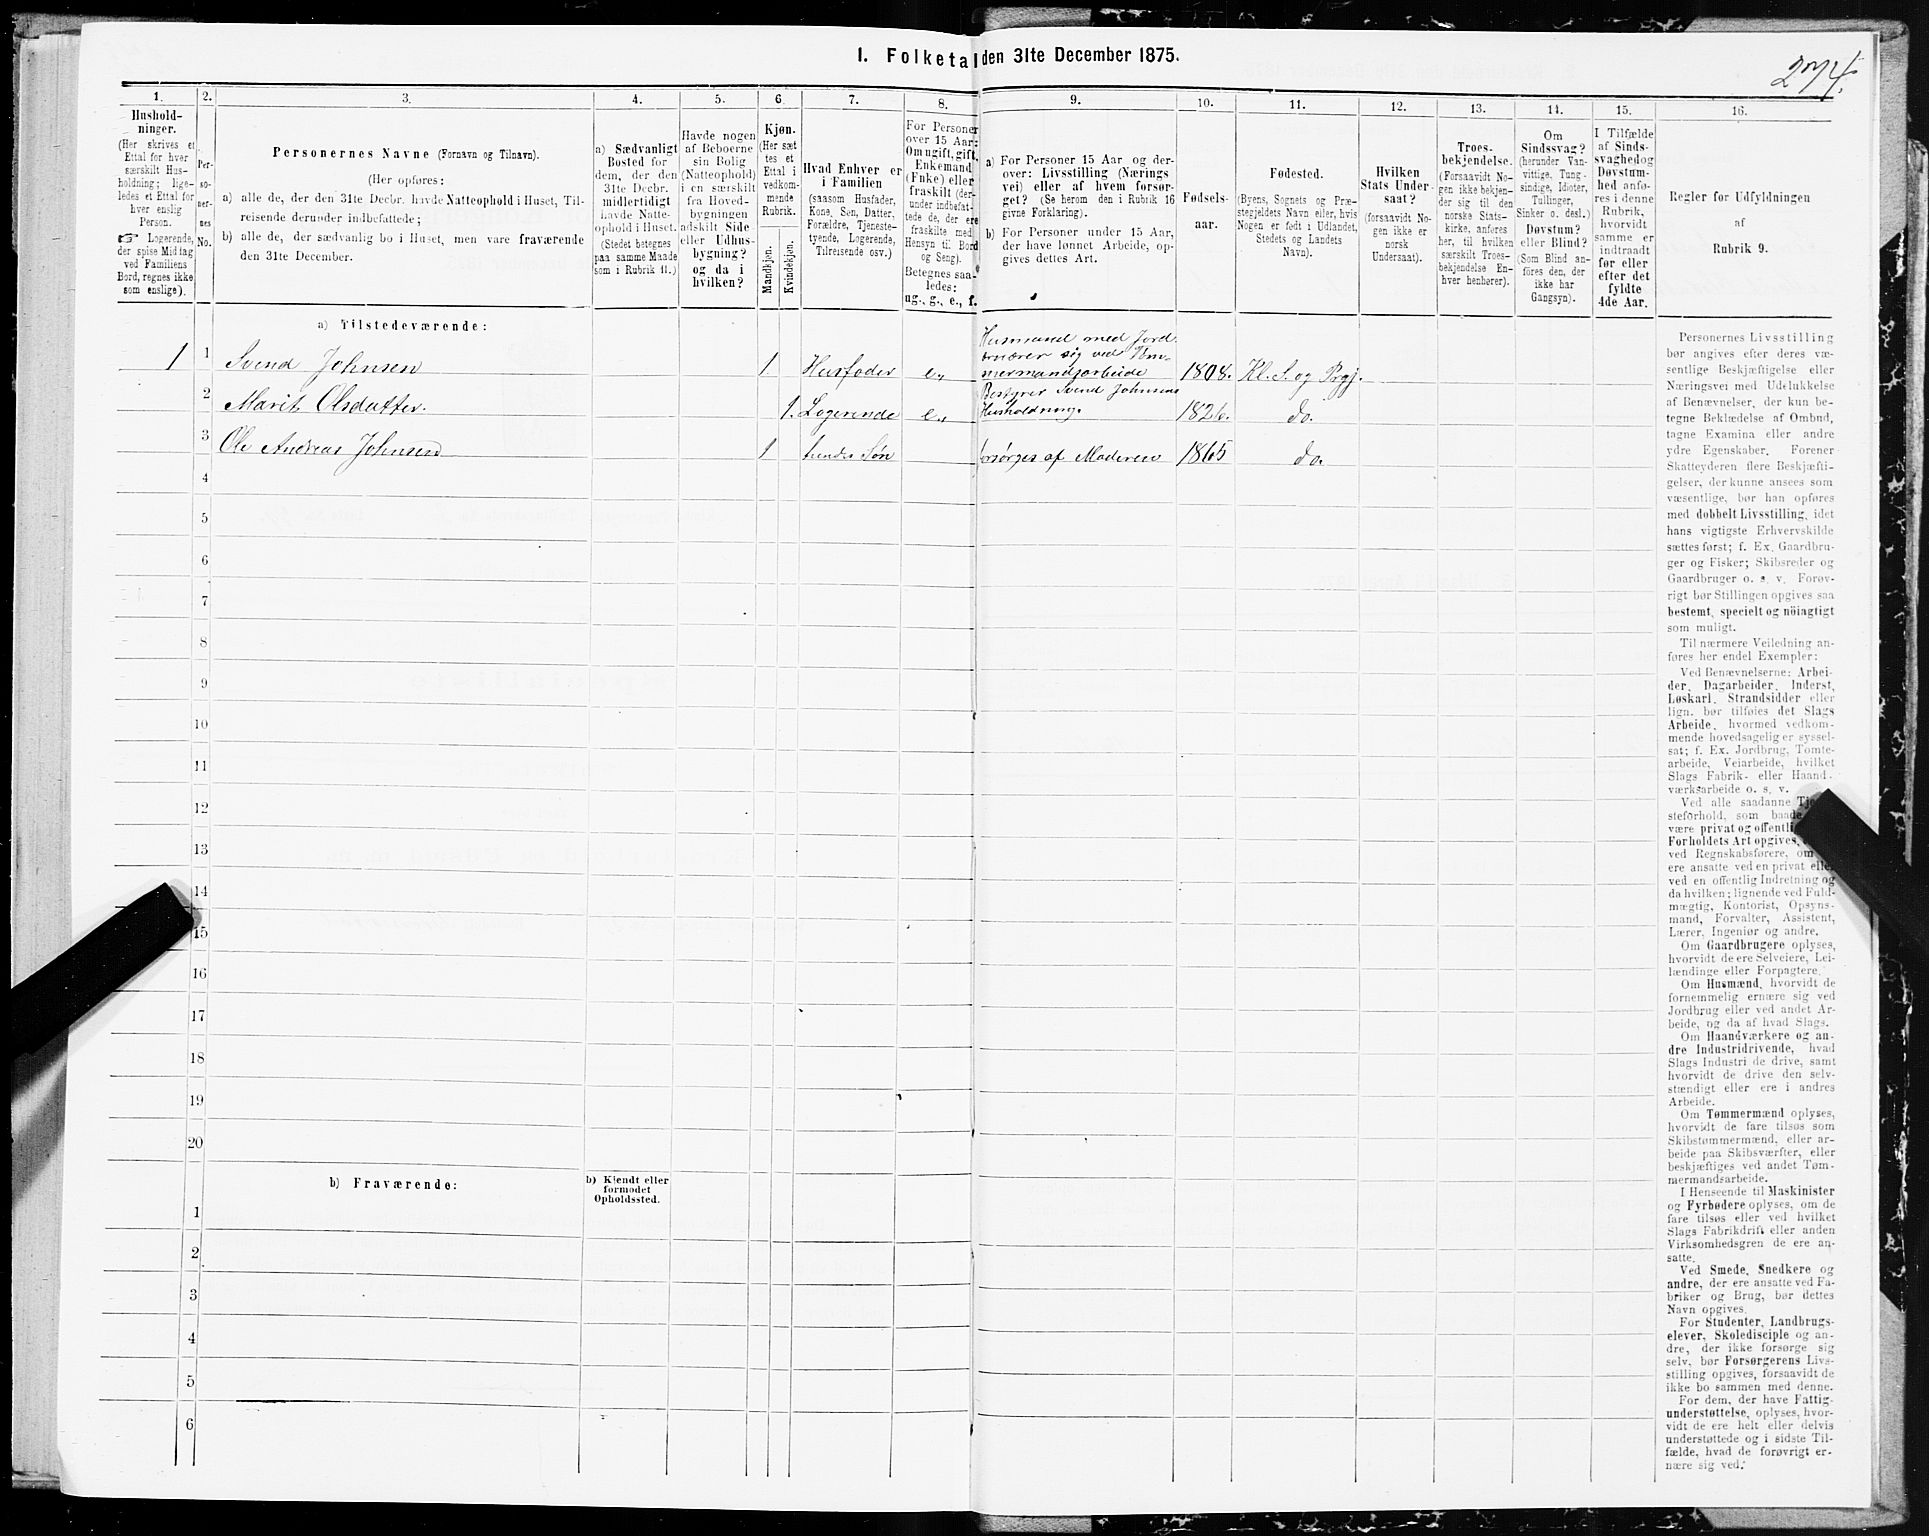 1. Folketal den 31te December 1875.
274.
1. 2. 3. 4. 5. 6. 7. 8. 9. 10. 11. 12. 13. 14. 15. 16.
Hushold-
ninger.
(Her skrives et
Ettal for hver
særskilt Hus-
holdning; lige-
ledes et Ettal for
hver enslig
Person.
☞ Logerende,
der spise Middag
ved Familiens
Bord, regnes ikke
som enslige).
Per-
so-
ner-
nes
No.
Personernes Navne (Fornavn og Tilnavn).
(Her opføres:
a) alle de, der den 31te Decbr. havde Natteophold i Huset, Til-
reisende derunder indbefattede;
b) alle de, der sædvanlig bo i Huset, men vare fraværende
den 31te December.
a) Sædvanligt
Bosted for
dem, der den
31te Decbr.
midlertidigt
havde Natte-
ophold i Huset.
(Stedet betegnes
paa samme Maade
som i Rubrik 11.)
Havde nogen
af Beboerne
sin Bolig
(Natteophold)
i en særskilt
fra Hoved-
bygningen
adskilt Side-
eller Udhus-
bygning?
og da i
hvilken?
Kjøn.
(Her sæt-
tes et
Ettal i
vedkom-
mende
Rubrik.
Mandkjøn.
Kvindekjøn.
Hvad Enhver er
i Familien
(saasom Husfader,
Kone, Søn, Datter,
Forældre, Tjeneste-
tyende, Logerende,
Tilreisende osv.)
For Personer
over 15 Aar:
Om ugift, gift,
Enkemand
(Enke) eller
fraskilt (der-
under indbefat-
tede de, der ere
fraskilte med
Hensyn til Bord
og Seng).
Betegnes saa-
ledes:
ug., g., e., f.
a) For Personer 15 Aar og der-
over: Livsstilling (Nærings
vei) eller af hvem forsør-
get? (Se herom den i Rubrik 16
givne Forklaring).
b) For Personer under 15 Aar,
der have lønnet Arbeide, op-
gives dettes Art.
Fødsels-
aar.
Fødested.
(Byens, Sognets og Præ-
stegjeldets Navn eller, hvis
Nogen er født i Udlandet,
Stedets og Landets
Navn).
Hvilken
Stats Under-
saat?
(forsaavidt No-
gen ikke er
norsk
Undersaat).
Troes-
bekjendelse.
(Forsaavidt No-
gen ikke bekjen-
der sig til den
norske Stats-
kirke, anføres
her, til hvilken
særskilt Troes-
bekjendelse En-
hver henhører).
Om
Sindssvag?
(herunder Van-
vittige, Tung-
sindige, Idioter,
Tullinger,
Sinker o. desl.)
Døvstum?
eller Blind?
(Som Blind an-
føres den, der
ikke har
Gangsyn).
I Tilfælde
af Sinds-
svaghed og
Døvstum-
hed anfø-
res i denne
Rubrik,
hvorvidt
samme er
indtraadt
før eller
efter det
fyldte
4de Aar.
Regler for Udfyldningen
af
Rubrik 9.
a) Tilstedeværende:
1 1 Svend Johnsen 1 Husfader e., Husmand med Jord. ernærer sig ved Tøm- mermandsarbeide 1808. Kl. S. og Prgj.
2 Marit Olsdatter. 1. Logerende e., Bestyrer Svend Johnsens Husholdning. 1826. do.
3 Ole Andreas Johnsen 1 hendes Søn forsørges af Moderen 1865 do.
4
5
6
7
8
9
10
11
12
13
14
15
16
17
18
19
20
b) Fraværende:
b) Kjendt eller
formodet
Opholdssted.
1
2
3
4
5
6
Personernes Livsstilling
bør angives efter deres væ-
sentlige Beskjæftigelse eller
Næringsvei med Udelukkelse
af Benævnelser, der kun be-
tegne Beklædelse af Ombud,
tagne Examina eller andre
ydre Egenskaber. Forener
Skatteyderen flere Beskjæfti-
gelser, der kunne ansees som
væsentlige, bør han opføres
med dobbelt Livsstilling, idet
hans vigtigste Erhvervskilde
sættes først; f. Ex. Gaardbru-
ger og Fisker; Skibsreder og
Gaardbruger o. s. v. Forøv-
rigt bør Stillingen opgives saa
bestemt, specielt og nöiagtigt
som muligt.
Til nærmere Veiledning an-
føres her endel Exempler:
Ved Benævnelserne: Arbei-
der, Dagarbeider, Inderst,
Løskarl, Strandsidder eller
lign. bør tilføies det Slags
Arbeide, hvormed vedkom-
mende hovedsagelig er syssel-
sat; f. Ex. Jordbrug, Tomte-
arbeide, Veiarbeide, hvilket
Slags Fabrik- eller Haand-
værksarbeide o. s. v.
Ved alle saadanne
steforhold, som baade
være privat og offentlig
Forholdets Art opgives,
ved Regnskabsførere, om
ere ansatte ved en privat eller
ved en offentlig Indretning og
da hvilken; lignende ved Fuld-
mægtig, Kontorist, Opsyns-
mand, Forvalter, Assistent,
Lærer, Ingeniør og andre.
Om Gaardbrugere oplyses,
hvorvidt de ere Selveiere, Lei-
lændinge eller Forpagtere.
Om Husmænd, hvorvidt de
fornemmelig ernære sig ved
Jordbrug eller ved andet Ar-
beide, og da af hvad Slags.
Om Haandværkere og an-
dre Industridrivende, hvad
Slags Industri de drive, samt
hvorvidt de drive den selv-
stændigt eller ere i andres
Arbeide.
Om Tømmermænd oplyses,
hvorvidt de fare tilsøs som
Skibstømmermænd, eller ar-
beide paa Skibsværfter, eller
beskjæftiges ved andet Tøm-
mermandsarbeide.
I Henseende til Maskinister
og Fyrbødere oplyses, om de
fare tilsøs eller ved hvilket
Slags Fabrikdrift eller anden
Virksomhedsgren de ere an-
satte.
Ved Smede, Snedkere og
andre, der ere ansatte ved Fa-
briker og Brug, bør dettes
Navn opgives.
For Studenter, Landbrugs-
elever, Skoledisciple og an-
dre, der ikke forsørge sig
selv, bør Forsørgerens Livs-
stilling opgives, forsaavidt de
ikke bo sammen med denne.
For dem, der have Fattig-
understøttelse, oplyses, hvor-
vidt de ere helt eller delvis
understøttede og i sidste Til-
fælde, hvad de forøvrigt er-
nære sig ved.